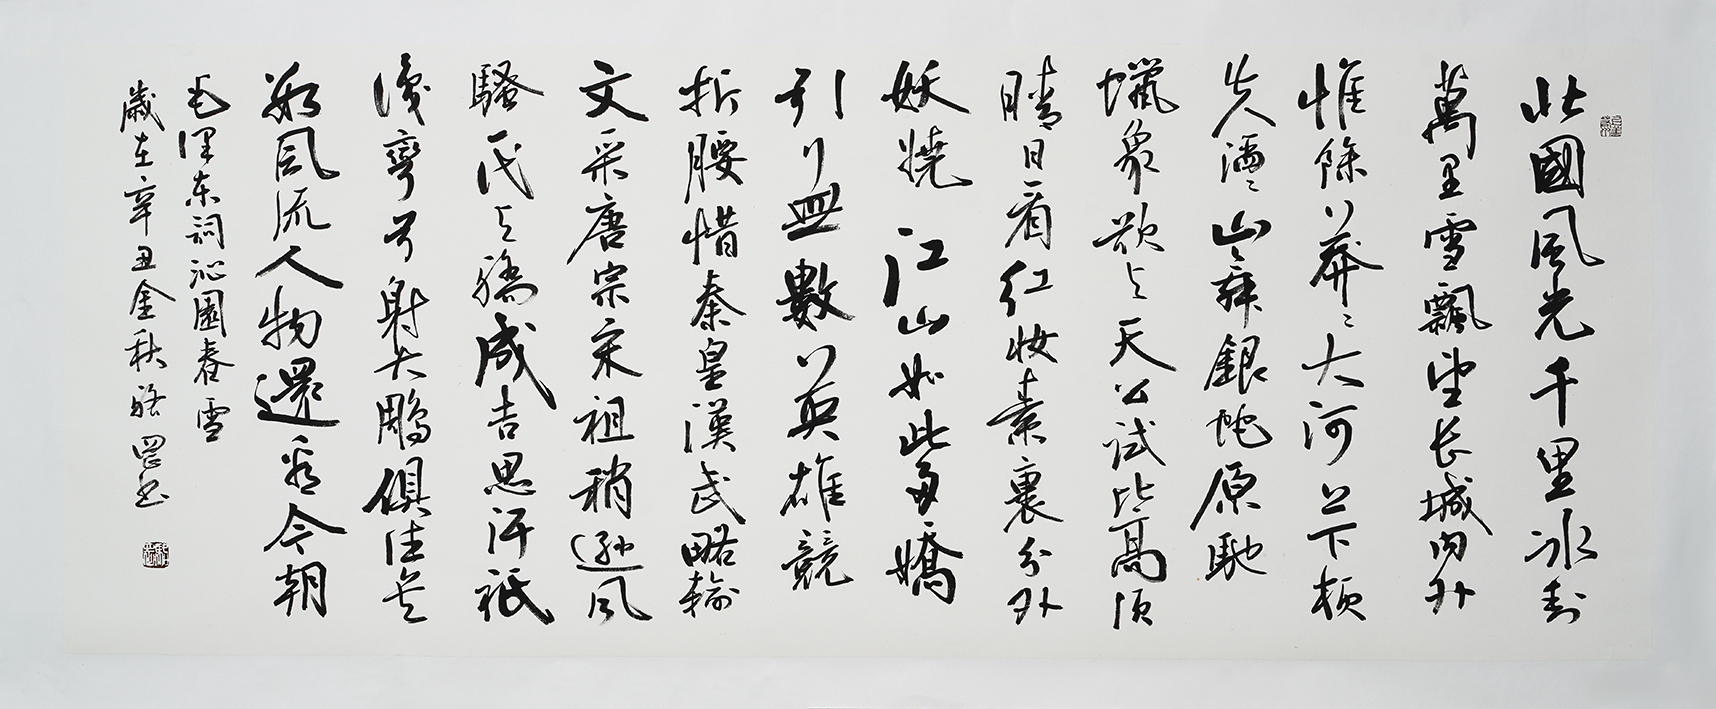 北國風光千里冰封
萬里雪飄望长城内外
惟餘莽々大河上下頓
失滔々山舞銀蛇原馳
蠟象欲与天公試比高須
晴日看红妆素裹分外
妖娆江山如此多嬌
引無數英雄競
折腰惜秦皇漢武略輸
文采唐宗宋祖稍遜風
騷一代天驕成吉思汗祇
識彎弓射大鵰俱往矣
數風流人物還看今朝
毛澤东詞沁園春雪
歲在辛丑金秋书